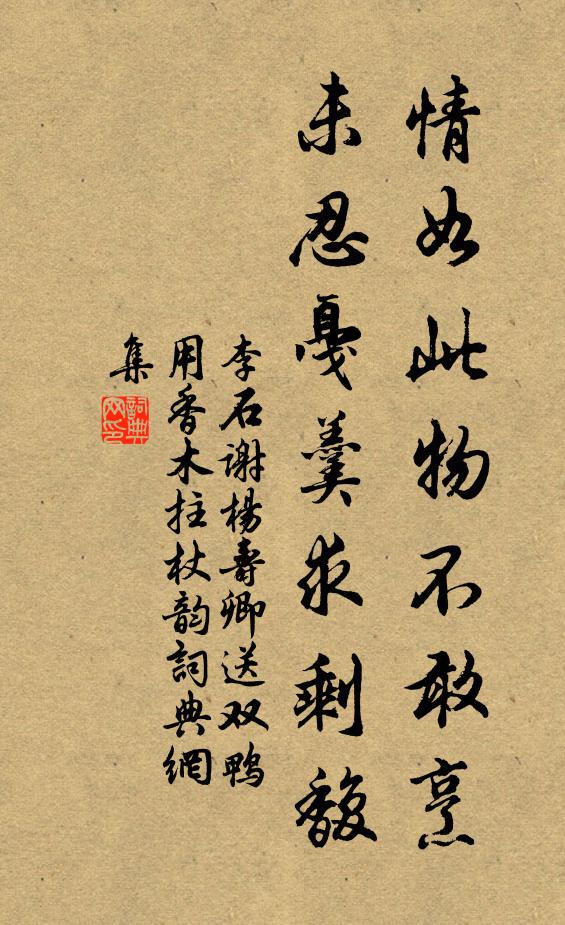 情如此物不敢烹
未忍戛羹求剩馥
李石谢杨寿卿送双鸭
用香木拄杖韵詞典網
集
詞典網印